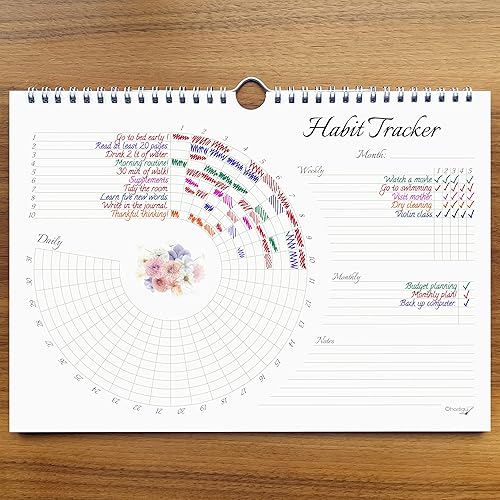 Habit Tracker
Month:
1 Go to bed early !
2 Read at least 20 pages
3 Drink 2 lt of water
4 Morning routine!
5 30 min of walk!
6 Supplements
7 Tidy the room
8 Learn five new words
9 Write in the journal
10 Thankful thinking!
Daily
1
2
3
4
5
6
7
8
9
10
18
19
20
21
22
23
24
25
26
27
28
29
30
31
Weekly
1 2 3 4 5
Watch a movie
Go to swimming
Visit mother
Dry cleaning
Violin class
Monthly
Budget planning
Monthly plan!
Back up computer
Notes